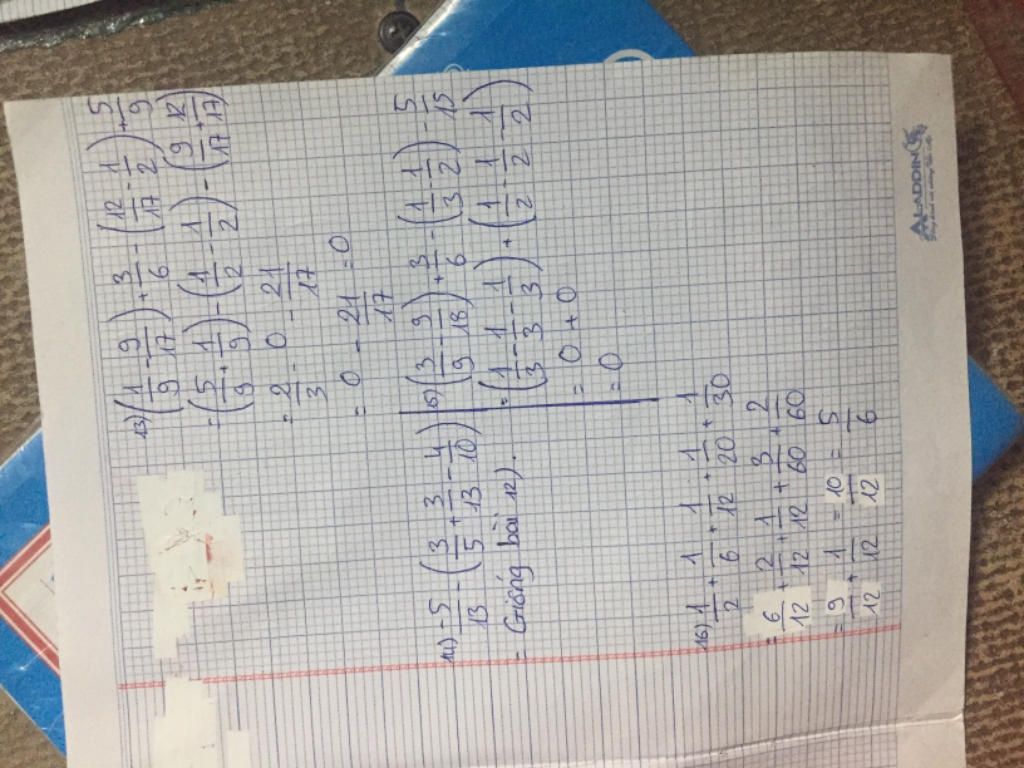 13) (1/9 - 9/17) + 3/6 - (12/17 - 1/2) + 5/9
= (5/9 + 1/9) - (1/2 - 1/2) - (9/17 + 12/17)
= 2/3 - 0 - 21/17
= 0 - 21/17 = 0
14) -5/13 - (3/5 + 3/13 - 4/10)
= Giống bài 12).
15) (3/9 - 9/18) + 3/6 - (1/3 - 1/2) - 5/15
= (1/3 - 1/3 - 1/3) + (1/2 - 1/2 - 1/2)
= 0 + 0
= 0
16) 1/2 + 1/6 + 1/12 + 1/20 + 1/30
= 6/12 + 2/12 + 1/12 + 3/60 + 2/60
= 9/12 + 1/12 = 10/12 = 5/6
ALADDIN